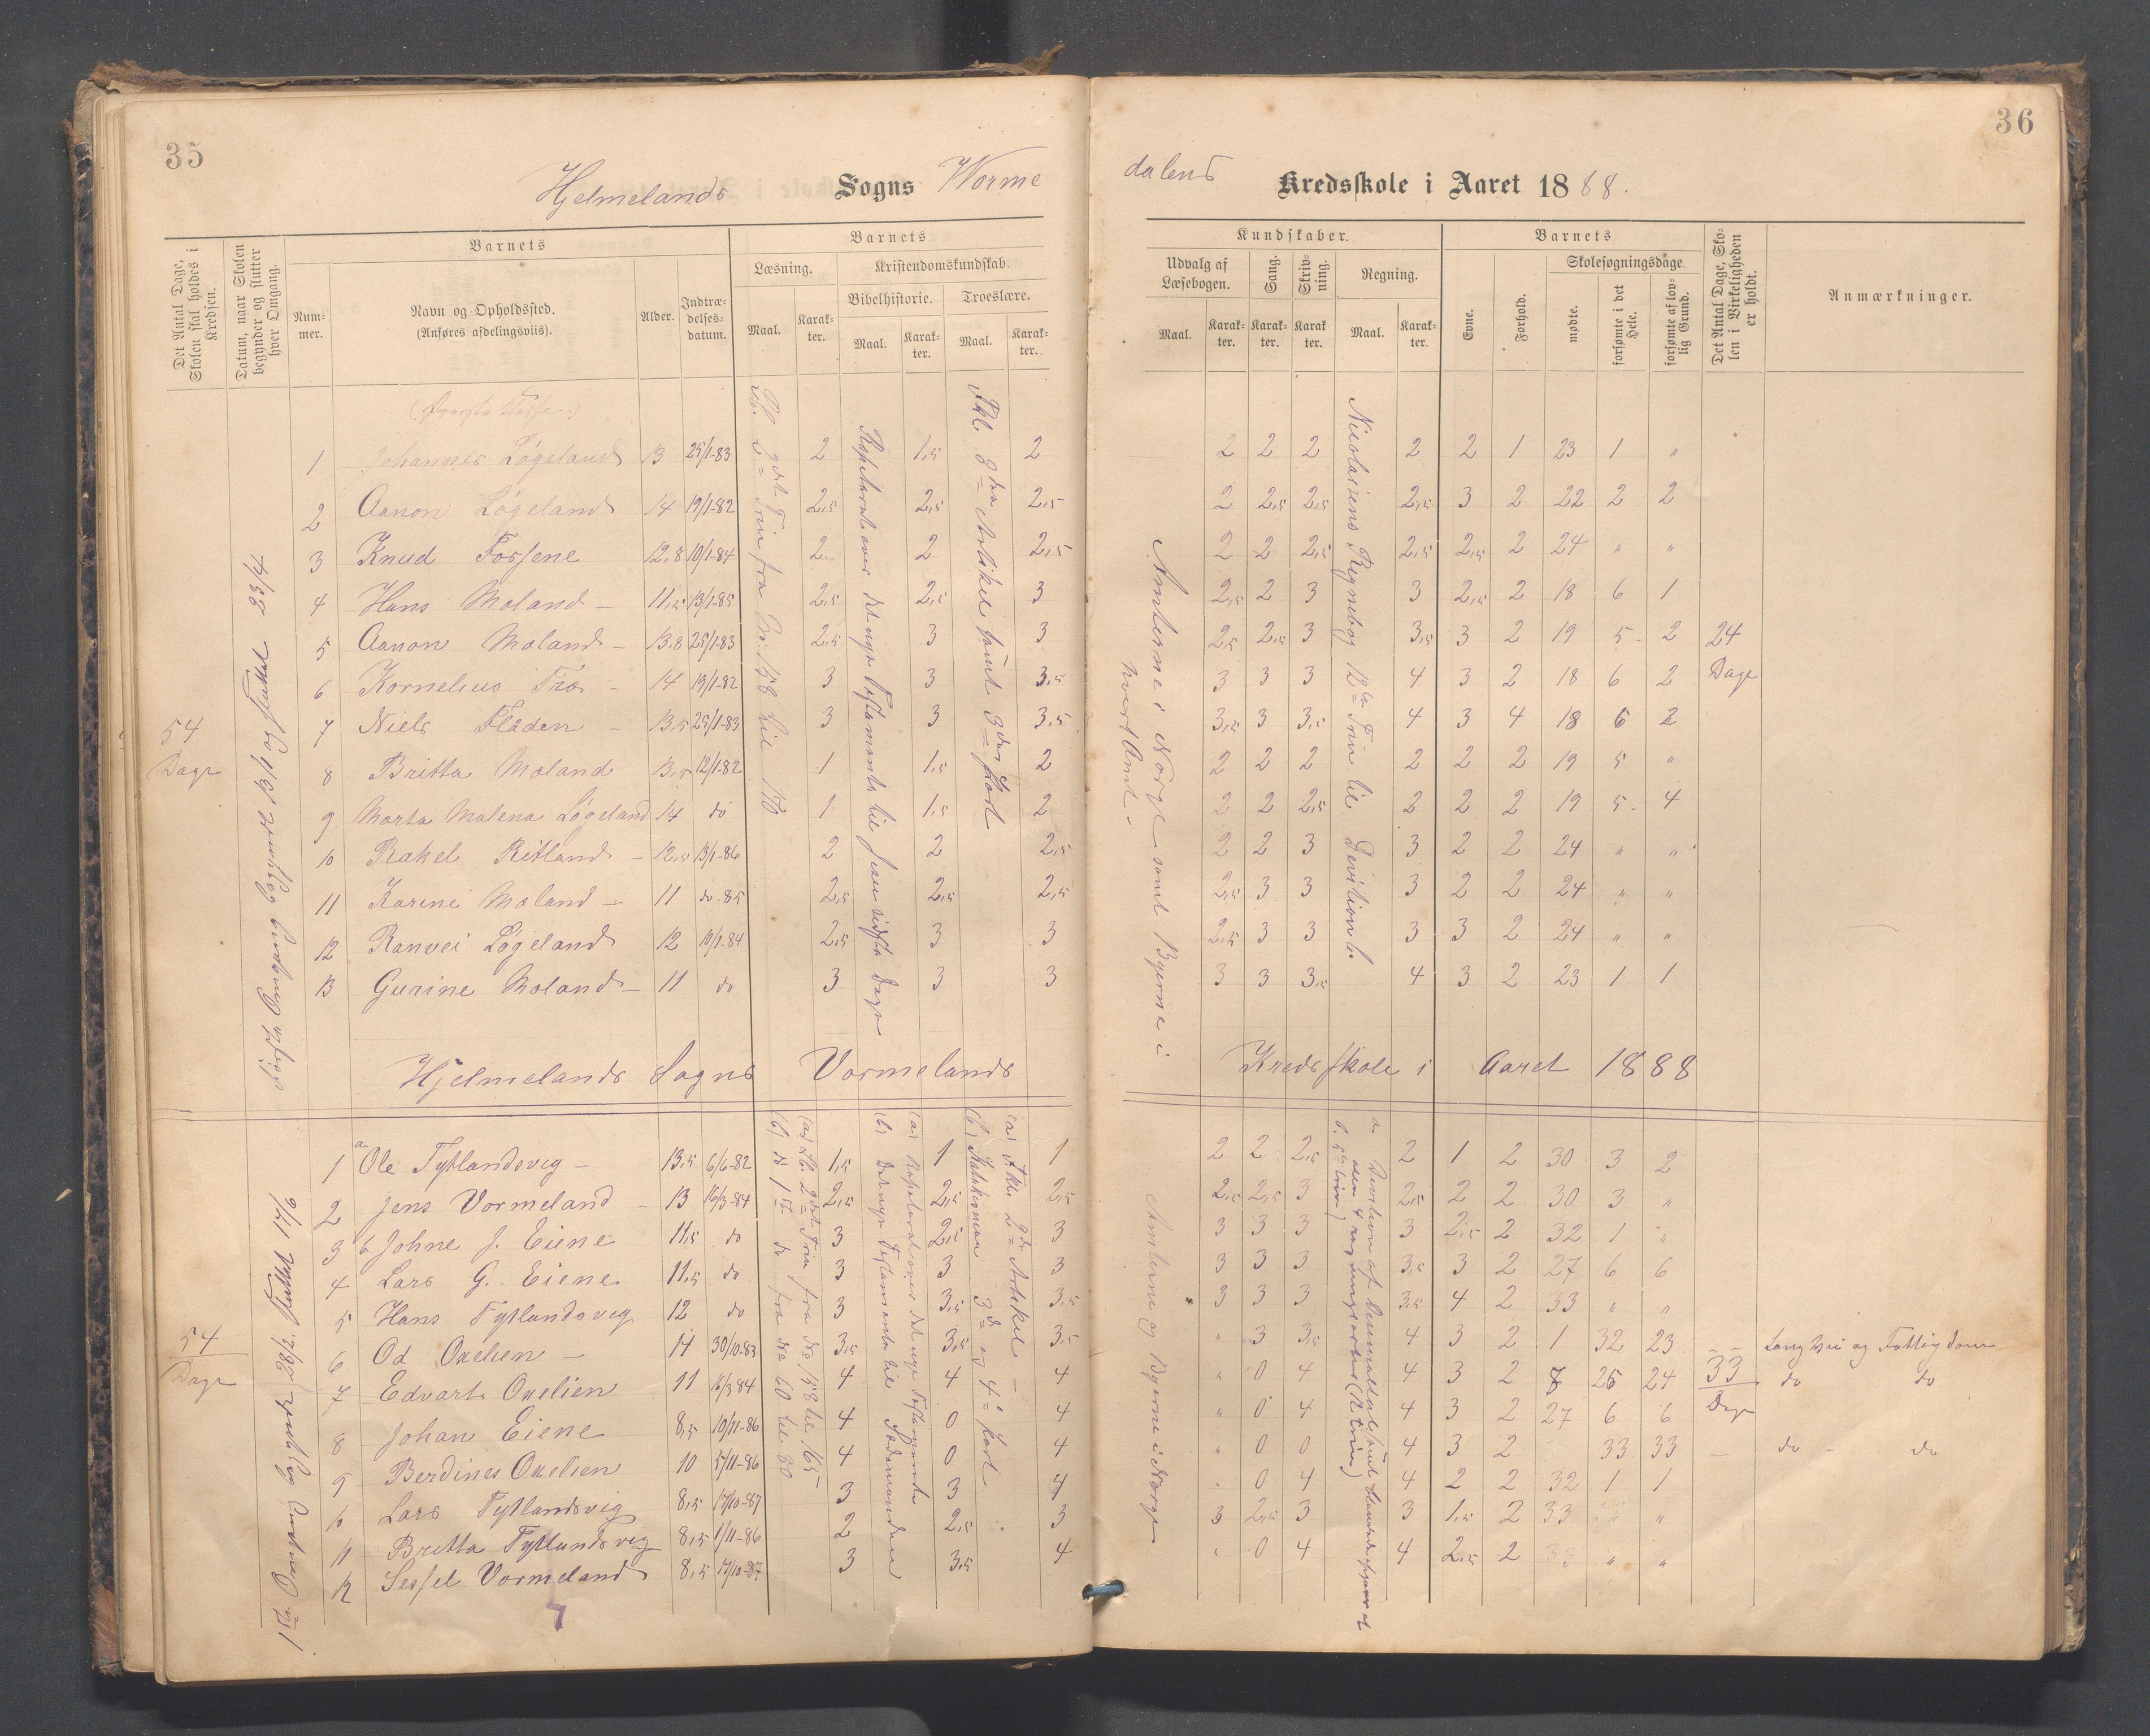 35
36
Hjelmelands Sogns Worme
dalens Kredsskole i Aaret 1888.
Det Antal Dage, Skolen skal holdes i Kredsen.
Datum, naar Skolen begynder og slutter hver Omgang.
Barnets
Nummer.
Navn og Opholdssted. (Anføres afdelingsviis).
Alder.
Indtrædelsesdatum.
Barnets
Læsning.
Maal.
Karakter.
Kristendomskundskab.
Bibelhistorie.
Maal.
Karakter.
Troeslære.
Maal.
Karakter.
Kundskaber.
Udvalg af Læsebogen.
Maal.
Karakter.
Sang.
Karakter.
Skrivning.
Karakter.
Regning.
Maal.
Karakter.
Barnets
Evne.
Forhold.
Skolesøgningsdage.
mødte.
forsømte i det Hele.
forsømte af lovlig Grund.
Det Antal Dage, Skolen i Virkeligheden er holdt.
Anmærkninger.
1 Johannes Løgeland 13 25/1-83 2 1,5 2 2 2 2 2 2 1 23 1 "
2 Aanon Løgeland 14 19/1-82 2,5 2,5 2,5 2 2,5 2,5 2,5 3 2 22 2 2
3 Knud Fossene 12,8 10/1-84 2 2 2,5 2 2 2,5 2,5 2,5 2 24 " "
4 Hans Moland - 11,5 13/1-85 2,5 2,5 3 2,5 2 3 3 2,5 2 18 6 1
5 Aanon Moland - 13,8 25/1-83 2,5 3 3 2,5 2,5 3 3,5 3 2 19 5 2 24
6 Kornelius Træ - 14 19/1-82 3 3 3,5 3 3 3 4 3 2 18 6 2 Dage
7 Niels Flåden - 13,5 25/1-83 3 3 3,5 3,5 3 3,5 4 3 4 18 6 2
54 Dage
8 Britta Moland 13,5 12/1-82 1 1,5 2 2 2 2 2 2 2 19 5 "
9 Marta Malena Løgeland 14 do 1 1,5 2 2 2 2,5 2 2 2 19 5 4
10 Rakel Ritland - 12,5 13/1-86 2 2 2,5 2 2 3 3 2 2 24 " "
11 Karine Moland - 11 do-85 2,5 2,5 2,5 2,5 3 3 3 2 2 24 " "
12 Ranvei Løgeland 12 10/1-84 2,5 3 3 2,5 3 3 3 3 2 24 " "
13 Gurine Moland - 11 do 3 3 3 3 3 3,5 4 3 2 23 1 1
Repeteret over det nye Testamente til Jesu sidste Dage
Fkl. 3die Artikel samt 3die Part
Amterne i Norge samt Byerne i hvert Amt.
Nicolaisens Regnebog 12te Trin til Devition b.
Hjelmelands Sogns Vormelands Kredsskole i Aaret 1888
1 a Ole Tytlandsvig - 13,5 6/6-82 1,5 1 1 2 2 2,5 2 1 2 30 3 2
2 Jens Vormeland - 13 16/3-84 2,5 2,5 2,5 2,5 2,5 3 2,5 2 2 30 3 "
3 b Johne J. Eiene 11,5 do 3 2,5 3 3 3 3 3 2,5 2 32 1 "
4 Lars G. Eiene 11,5 do 3 3 3 3 3 3 3,5 3 2 27 6 6
5 Hans Tytlandsvig 12 do 3 3,5 3,5 3 3 3 3,5 4 2 33 " "
54 Dage
6 Od Oxelien - 14 30/10-83 3,5 3,5 3,5 " 3 3,5 4 3 2 1 32 23 Lang Vei og Fattigdom
7 Edvart Oxelien 11 16/3 84 4 4 4 " 0 4 4 3 2 25 24 33 Dage do do
8 Johan Eiene 8,5 10/11-86 4 0 4 " 0 4 4 3 2 27 6 6
9 Berdines Oxelien 10 5/11-86 4 0 4 " 0 0 4 3 2 33 33 - do - do
10 Lars Tytlandsvig 8,5 17/10-87 3 3 4 " 0 4 4 2 2 32 1 1
11 Britta Tytlandsvig 8,5 1/11-86 2 2,5 3 3 2,5 3 3 1,5 2 33 " "
12 Sessel Vormeland 8,5 17/10-87 3 3,5 4 " 0 4 4 2,5 2 33 " "
Amterne og Byerne i Norge